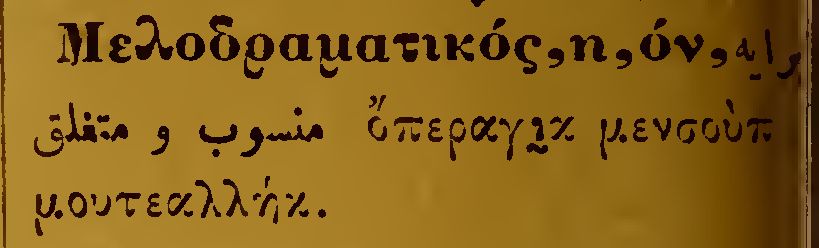 Μελοδραματικός,η,όν,
منسوب و متعلق ὄπεραγικ μενσοὺπ
μουτεαλλήκ.